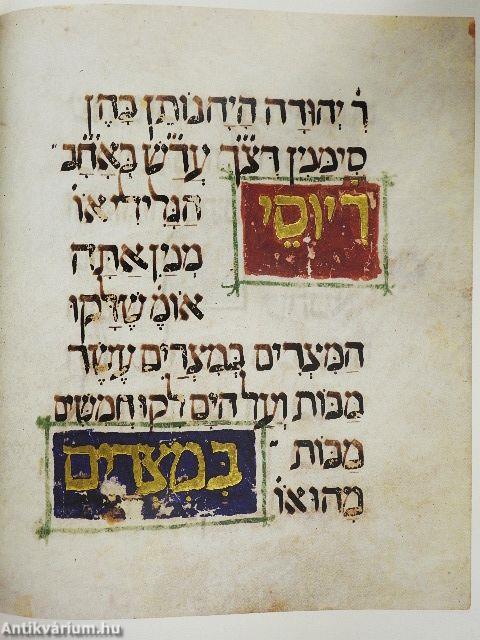 ר׳ יְהוּדָה הָיָה נוֹתֵן בָּהֶן
סִימָנִין דְּצַ״ךְ עֲדַ״שׁ בְּאַחַ״ב
רִ׳ יוֹסֵי
הַגָּלִילִי או׳
מִמִּן אַתָּה
אוֹמֵ׳ שֶׁלָּקוּ
הַמִּצְרִים בְּמִצְרַיִם עֶשֶׂר
מַכּוֹת וְעַל הַיָּם לָקוּ חֲמִשִּׁים
מַכּוֹת
בְּמִצְרַיִם
מָהוּ או׳
Antikvárium.hu